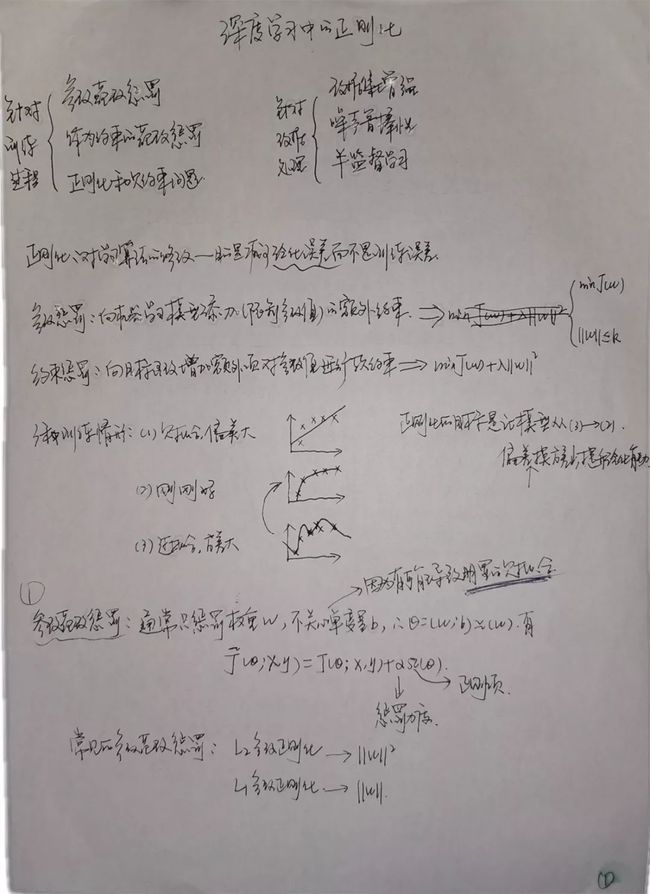 深度学习中的正则化
针对训练过程
参数范数惩罚
作为约束的范数惩罚
正则化和欠约束问题
针对数据处理
数据集增强
噪声鲁棒性
半监督学习
正则化:对学习算法的修改——旨在减少泛化误差而不是训练误差.
参数惩罚:向机器学习模型添加(限制参数值)的额外约束. ⇒ min J(w)+λ||w||² { min J(w)
||w||≤k
约束惩罚:向目标函数增加额外项对参数值进行软约束 ⇒ min J(w)+λ||w||²
训练情形:(1) 欠拟合,偏差大
正则化的目标是让模型从(3)→(2).
偏差换方差,提高泛化能力
(2) 刚刚好
(3) 过拟合,方差大
①
因为有可能导致明显的欠拟合
参数范数惩罚:通常只惩罚权重w,不关心偏置b,∴θ=(w;b)≃(w).有
J̃(θ;X,y)=J(θ;X,y)+αΩ(θ).
正则项.
惩罚力度.
常见的参数范数惩罚: L₂参数正则化 → ||w||²
L₁参数正则化 → ||w||.
①